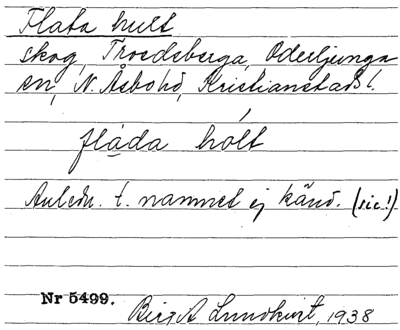 Flata hult
skog, Troedsberga, Oderljunga
sn, N. Åsbo hd, Kristianstads l.
flada hólt
Anledn. t. namnet ej känd. (sic!)
Nr 5499.
Birgit Lundkvist, 1938